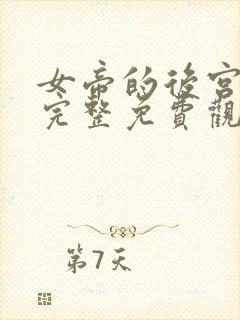 女帝的後宮
完整免費觀
第7天